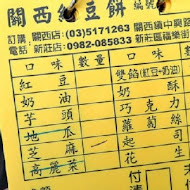 關西紅豆餅 編號
訂購 關西店:(03)5171263 關西鎮中興路
電話 新莊店:0982-085833 新莊區福樂街
口味 數量 口味
紅豆 雙餡(紅豆+奶油)
奶油 巧克力
芋頭 蘿蔔絲
地瓜 起司
芝麻 花生
高麗菜